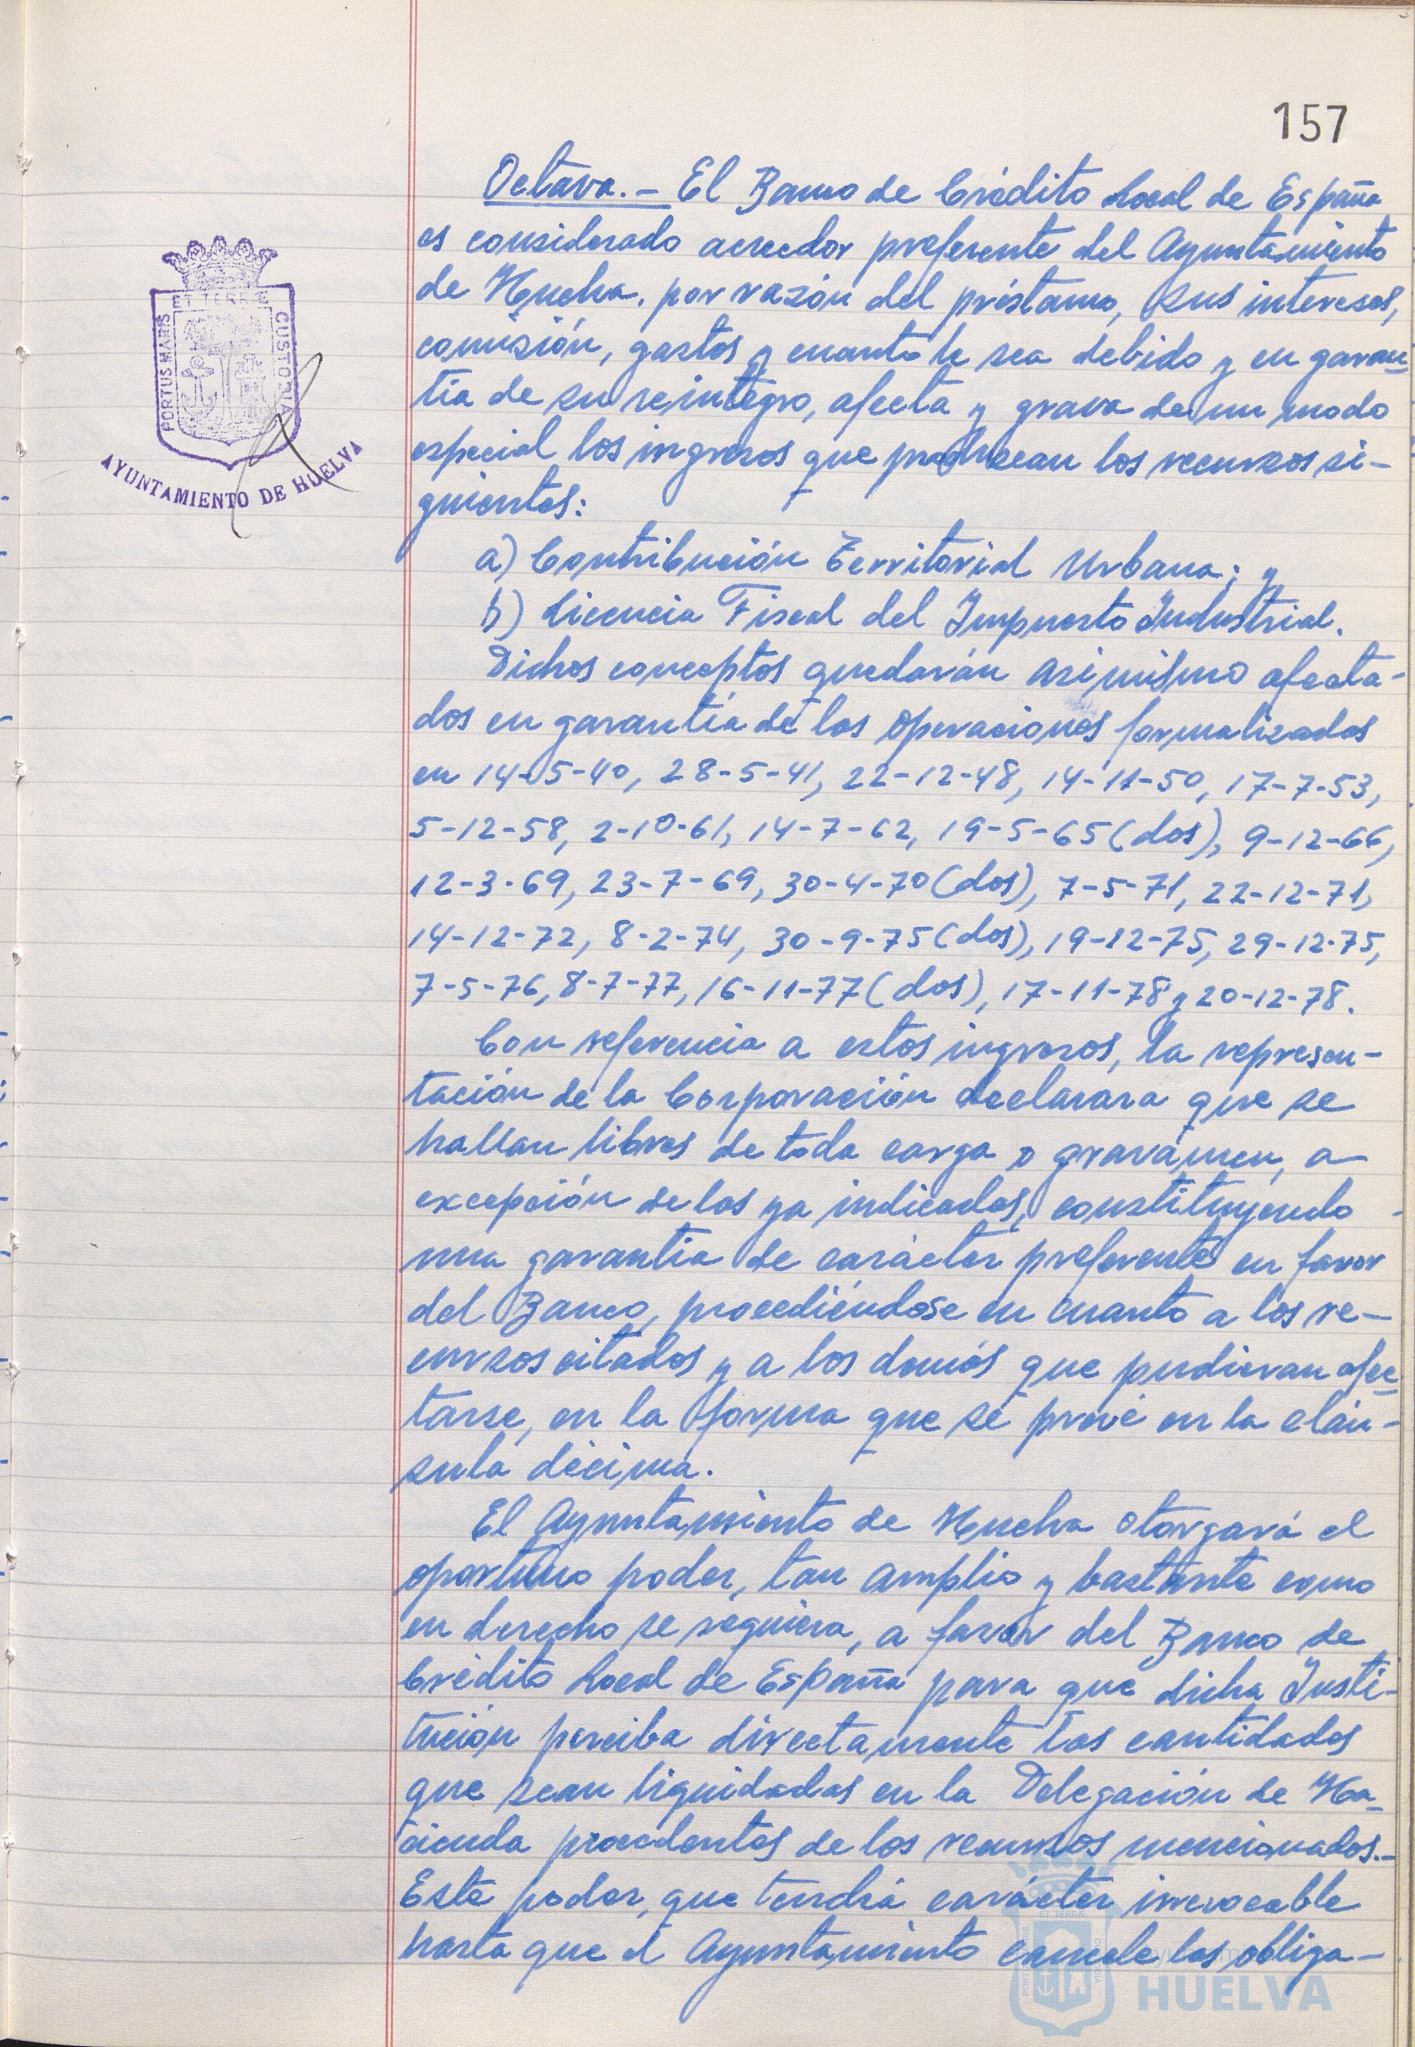 157
Octava.- El Banco de Crédito Local de España
es considerado acreedor preferente del Ayuntamiento
de Huelva, por razón del préstamo, sus intereses,
comisión, gastos y cuanto le sea debido y en garan-
tía de su reintegro, afecta y grava de un modo
especial los ingresos que produzcan los recursos si-
guientes:
a) Contribución Territorial Urbana; y
b) Licencia Fiscal del Impuesto Industrial.
Dichos conceptos quedarán asimismo afecta-
dos en garantía de las operaciones formalizadas
en 14-5-40, 28-5-41, 22-12-48, 14-11-50, 17-7-53,
5-12-58, 2-10-61, 14-7-62, 19-5-65 (dos), 9-12-66,
12-3-69, 23-7-69, 30-4-70 (dos), 7-5-71, 22-12-71,
14-12-72, 8-2-74, 30-9-75 (dos), 19-12-75, 29-12-75,
7-5-76, 8-7-77, 16-11-77 (dos), 17-11-78 y 20-12-78.
Con referencia a estos ingresos, la represen-
tación de la Corporación declarara que se
hallan libres de toda carga o gravámen, a
excepción de las ya indicadas, constituyendo
una garantía de carácter preferente en favor
del Banco, procediéndose en cuanto a los re-
cursos citados y a los demás que pudieran afec-
tarse, en la forma que se prevé en la cláu-
sula décima.
El Ayuntamiento de Huelva otorgará el
oportuno poder, tan amplio y bastante como
en derecho se requiera, a favor del Banco de
Crédito Local de España para que dicha Insti-
tución perciba directamente las cantidades
que sean liquidadas en la Delegación de Ha-
cienda procedentes de los recursos mencionados.-
Este poder, que tendrá carácter irrevocable
hasta que el Ayuntamiento cancele las obliga-
PORTUS MARIS ET TERRE CUSTODIA
AYUNTAMIENTO DE HUELVA
HUELVA